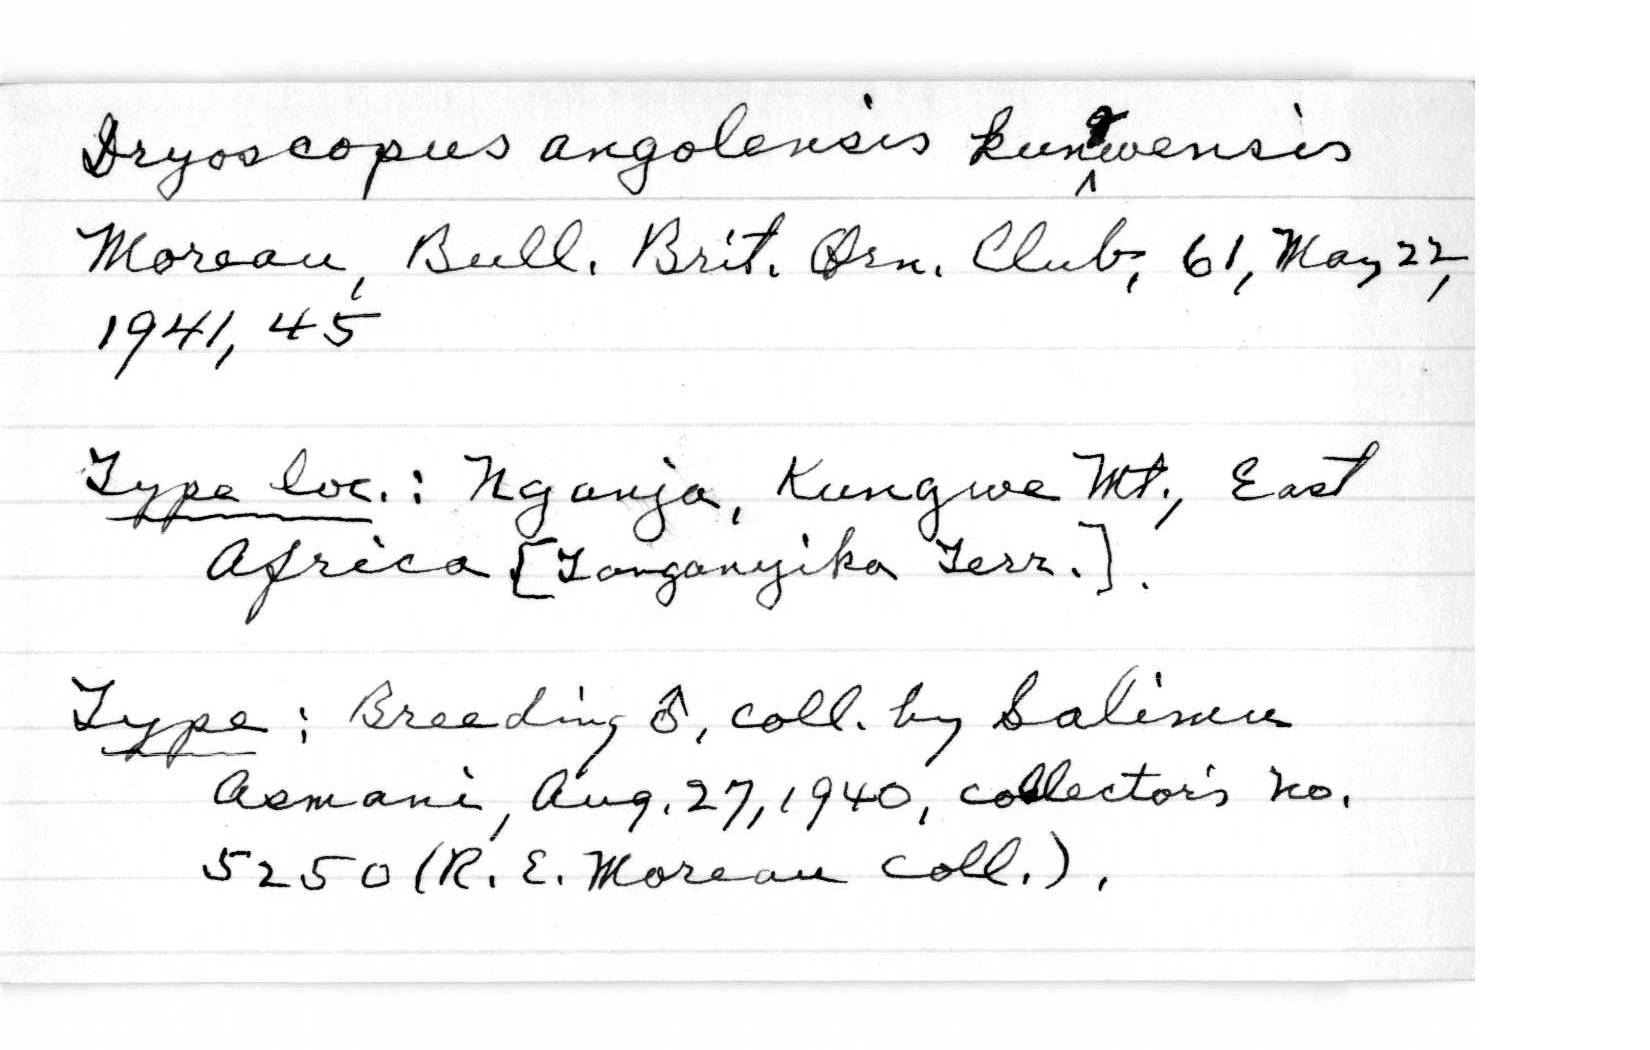 Dryoscopus angolensis kungwensis
Moreau, Bull. Brit. Orn. Club, 61, May 22,
1941, 45
Type loc.: Nganja, Kungwe Mt., East
Africa [Tanganyika Terr.].
Type: Breeding ♂, coll. by Salimu
Asmani, Aug. 27, 1940, collector's no.
5250 (R. E. Moreau coll.).